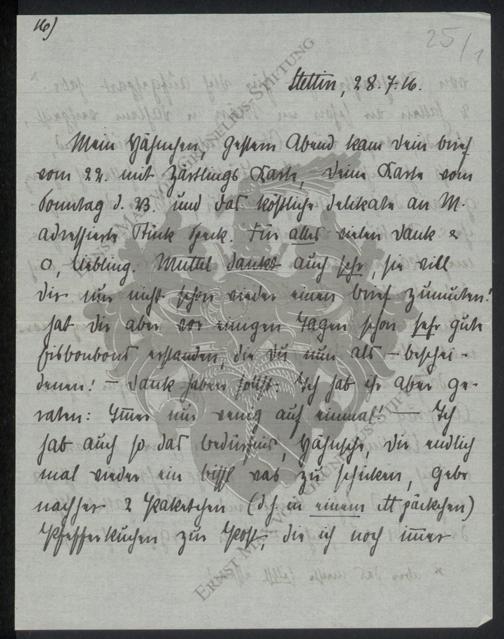 16)
25/1
Stettin, 28.7.16.
Mein Hähnchen, gestern Abend kam dein brief
vom 22. mit Zärtlings Karte, deine Karte vom
Sonntag d. 23. und das köstliche delikate an M.
adressierte Stück Speck. Für alles vielen Dank &
O, liebling. Muttel dankt auch sehr, sie will
dir nur nicht schon wieder einen brief zumuten!
hat dir aber vor einigen Tagen schon sehr gute
Eisbonbons erstanden, die du nun als – beschei-
denen! – Dank haben sollst. Ich hab ihr aber ge-
raten: Immer nur wenig auf einmal! — Ich
hab auch so das bedürfnis, Hähnche, dir endlich
mal wieder ein bissl was zu schicken, gebe
nachher 2 Paketchen (d.h. in einem päckchen)
Pfefferkuchen zur Post, die ich noch immer
ERNST MARTIN GRUNELIUS-STIFTUNG